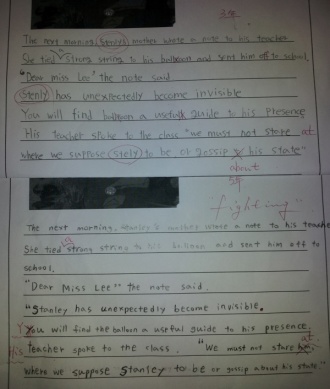 The next morning, stenly's mother whose a note to his teacher
She tied strong string to his balloon and sent him off to school.
"Dear miss Lee" the note said
Stenly has unexpectedly become invisible
You will find balloon a useful guide to his presence
His teacher spoke to the class "we must not store at
where we suppose stely to be or gossip his state"
about
"fighting"
The next morning, stanley's mother whose a note to his teacher
She tied strong string to his balloon and sent him off to
school.
"Dear Miss Lee" the note said.
"Stanley has unexpectedly become invisible.
You will find the balloon a useful guide to his presence.
His teacher spoke to the class. "We must not stare at
where we suppose Stanley to be or gossip about his state."